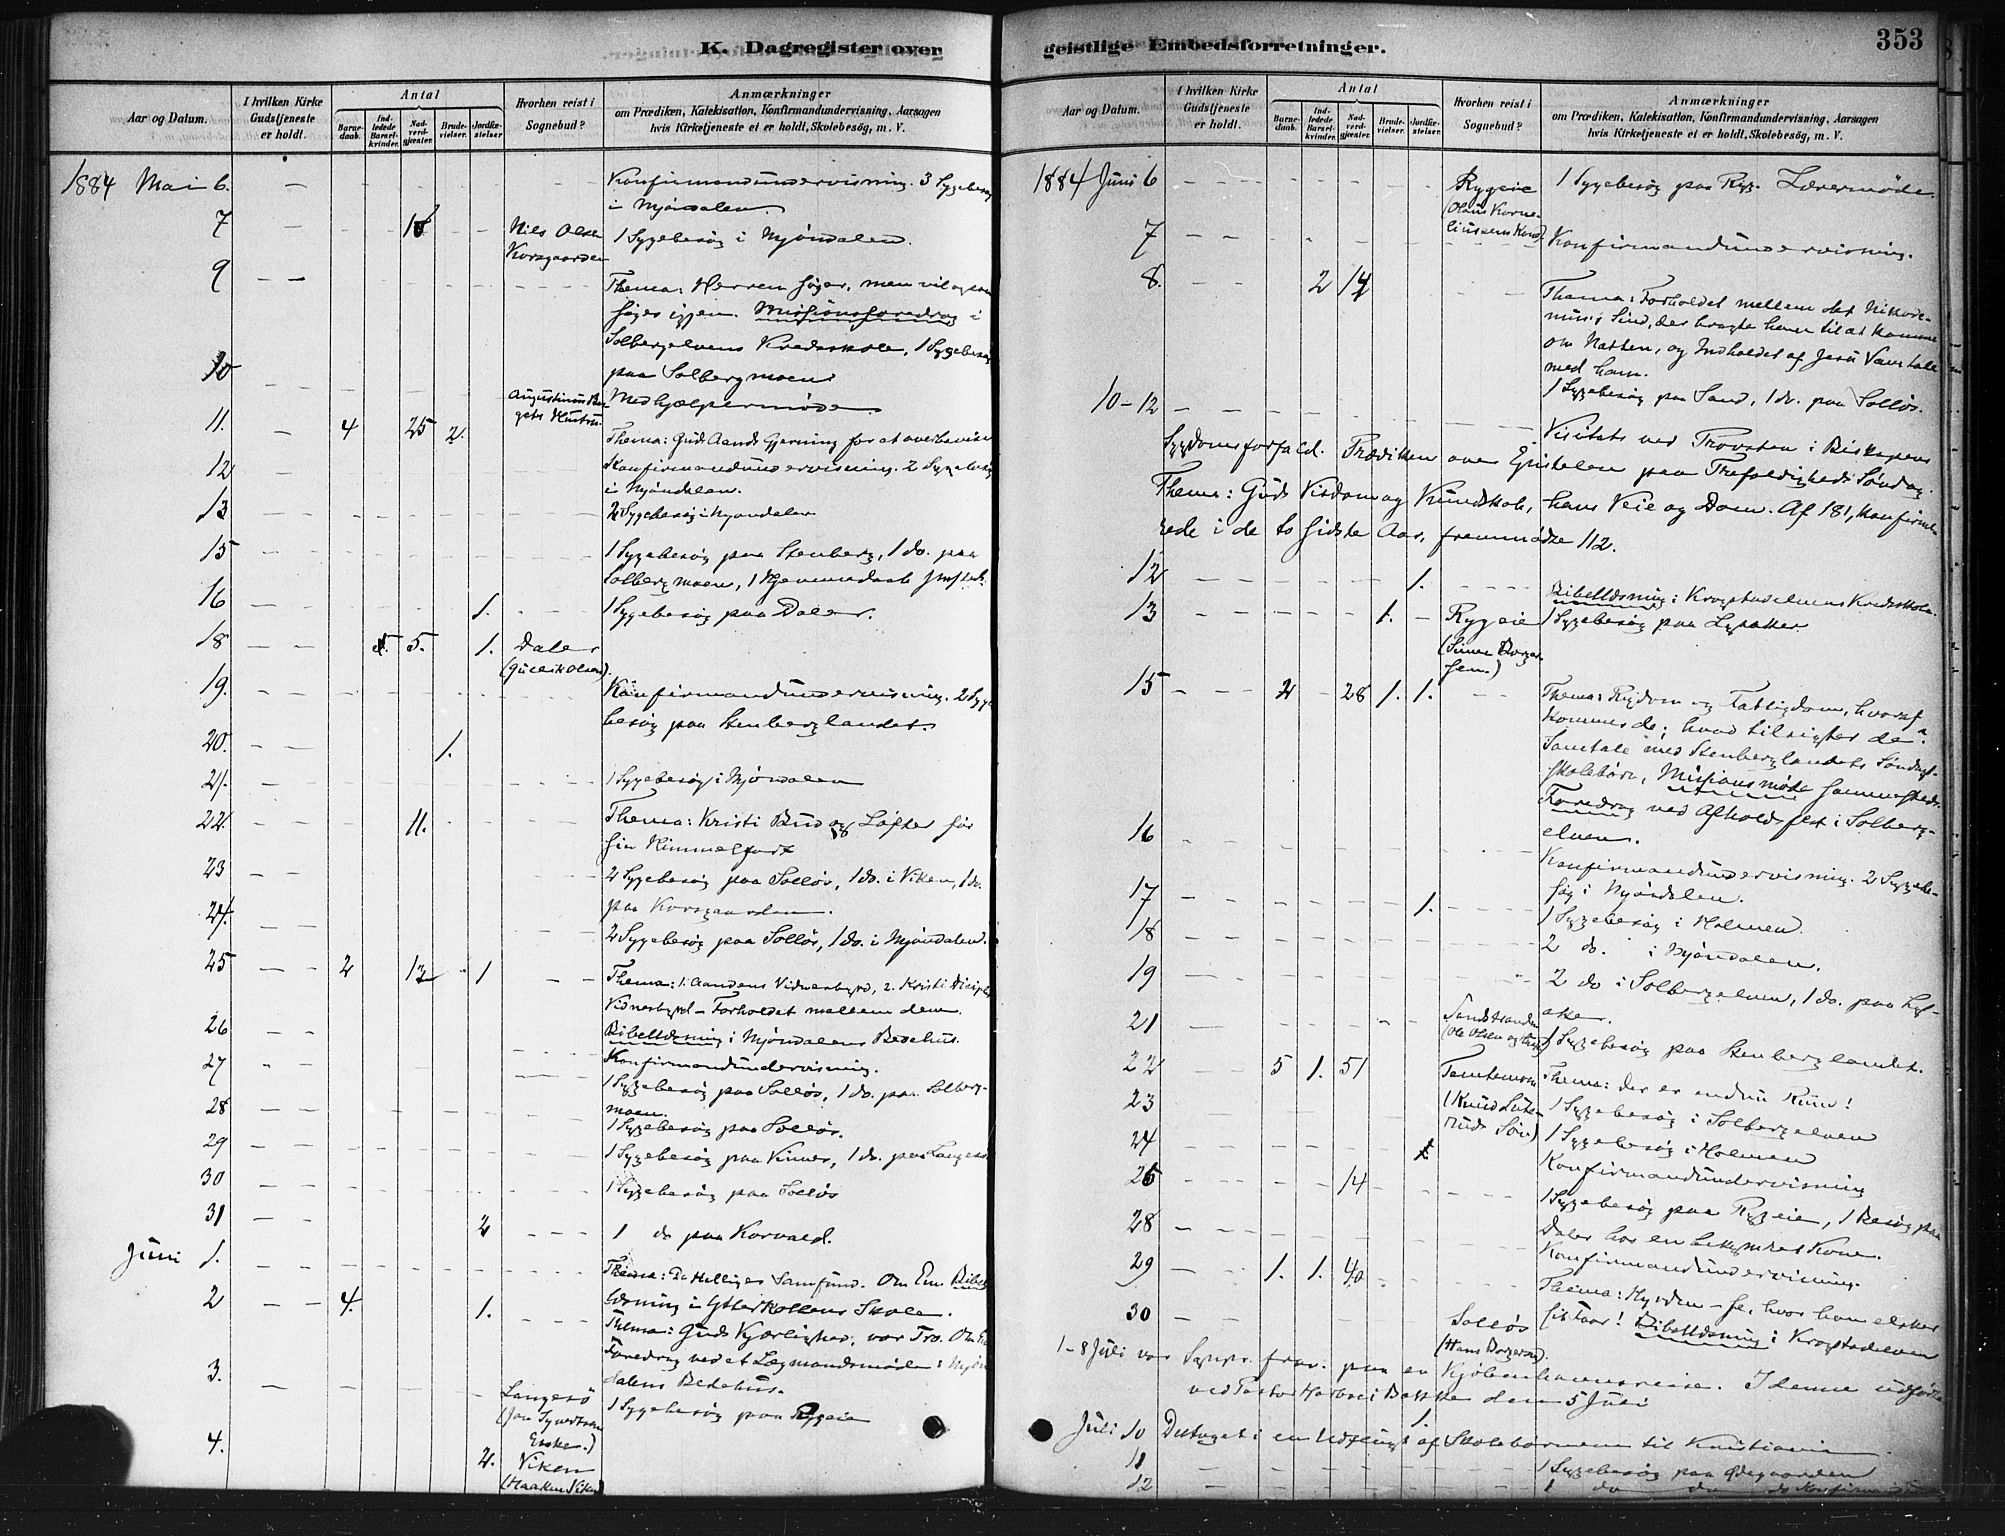 K. Dagregister over
Aar og Datum.
I hvilken Kirke Gudstjeneste er holdt.
Antal
Barnedaab.
Indledede Barselkvinder.
Nadverdgjæster.
Brudevielser.
Jordfæstelser
Hvorhen reist i Sognebud?
Anmærkninger
om Prædiken, Katekisation, Konfirmandundervisning, Aarsagen
hvis Kirketjeneste ei er holdt, Skolebesög, m. V.
1884 Mai 6. Konfirmandundervisning. 3 Sygebesøg
i Mjøndalen.
7 Nils Olsen 1 Sygebesøg i Mjøndalen.
Korsgaarden
9 Thema: Herren søger, men vil ogsaa
søges igjen. Missionsforedrag i
Solbergelvens Kredsskole, 1 Sygebesøg
paa Solbergmoen
10 Medhjælpermøde
11. 4 25 2. Thema: Guds Aands Gjerning for at overbevise
12 Konfirmandundervisning. 2 Sygebesøg
i Mjøndalen.
13 2 Sygebesøg i Mjøndalen
15 1 Sygebesøg paa Stenberg, 1 do. paa
Solbergmoen, 1 Hjemmedaab
16 1. 1 Sygebesøg paa Daler.
18 5. 1. Daler
19. Konfirmandundervisning. 2 Syge
besøg paa Stenberglandet.
20. 1.
21. 1 Sygebesøg i Mjøndalen
22. 11. Thema: Kristi Bud og Løfter før
sin Himmelfart
23 2 Sygebesøg paa Solløs, 1 do. i Viken, 1 do.
paa Korsgaarden.
24. 2 Sygebesøg paa Solløs, 1 do. i Mjøndalen.
25 2 12 1 Thema: 1. Aandens Vidnesbyrd, 2. Kristi Disciples
Vidnesbyrd – Forholdet mellem dem.
26 Bibellæsning i Mjøndalens Bedehus.
27 Konfirmandundervisning.
1 Sygebesøg paa Solløs, 1 do. paa Solberg-
moen.
28 1 Sygebesøg paa Solløs.
29 1 Sygebesøg paa Viken, 1 do. paa Langesø
30 1 Sygebesøg paa Solløs
31 2 1 do paa Korvald.
Juni 1. Thema: De Helliges Samfund. Om Em. Bibel
2 4. 1. læsning i Ytterkollens Skole.
Thema: Guds Kjærlighed, vor Tro. Om Em
Foredrag ved et Lægmandsmøde i Mjøn
3. dalens Bedehus.
Langesø 1 Sygebesøg paa Rygeie
4. 2. Viken
(Haaken Viken)
geistlige Embedsforretninger.
353
Aar og Datum.
I hvilken Kirke Gudstjeneste er holdt.
Antal
Barnedaab.
Indledede Barselkvinder.
Nadverdgjæster.
Brudevielser.
Jordfæstelser.
Hvorhen reist i Sognebud?
Anmærkninger
om Prædiken, Katekisation, Konfirmandundervisning, Aarsagen
hvis Kirketjeneste ei er holdt, Skolebesög, m. V.
1884 Juni 6 Rygeie 1 Sygebesøg paa Ryg. Læremøde
(Olaus Korne-
liussens Kone).
7 Konfirmandundervisning.
8. 2 14 Thema: Forholdet mellem det Nikode-
mus's Sind, der bragte ham til at komme
om Natten, og Indholdet af Jesu Samtale
med ham.
1 Sygebesøg paa Sand, 1 do. paa Solløs.
10-12 Visitats ved Provsten i Biskopens
Sygdomsforfald. Prædiken over Epistelen paa Trefoldigheds Søndag.
Thema: Guds Visdom og Kundskab, hans Veie og Dom. Af 181, konfirme-
rede i de to sidste Aar, fremmødte 112.
12 1. Bibellæsning i Krogstadelvens Kredsskole.
13 1. Rygeie 1 Sygebesøg paa Lysaker.
15 2 28 1. 1. Thema: Rigdom og Fattigdom, hvoraf
komme de; hvad tilsigter de?
Samtale med Stenberglandets Søndags-
skolebørn, Missionsmøde sammesteds.
Foredrag ved Afholdsfest i Solberg-
elven.
16 Konfirmandundervisning. 2 Sygebe-
søg i Mjøndalen.
17 1. 1 Sygebesøg i Holmen.
18 2 do. i Mjøndalen.
19 2 do i Solbergelven, 1 do. paa Lys-
aker.
21 Sandstranden 1 Sygebesøg paa Stenberglandet.
22 5 1. 51 Tomtemoen Thema: Der er endnu Rum!
23 1 Sygebesøg i Solbergelven
24 1 Sygebesøg i Holmen
Konfirmandundervisning
26 14 1 Sygebesøg paa Rygeie, 1 Besøg paa
Daler hos en bekymret Kone.
28 Konfirmandundervisning.
29 1. 1. 40 Thema: Hyrden – se, hvor han elsker
sit Faar! Bibellæsning i Krogstadelven
30 Solløs
(Hans Borgersen).
1-8 Juli var Sognepr. frav. paa en Kjøbenhavnsreise. I denne udførte
ved Pastor den 5 Juli
Juli 10 Deltaget i en Udflugt af Skolebørnene til Kristiania 1.
11 1 Sygebesøg paa Ødegaarden
12 1 do do do Konfirmand